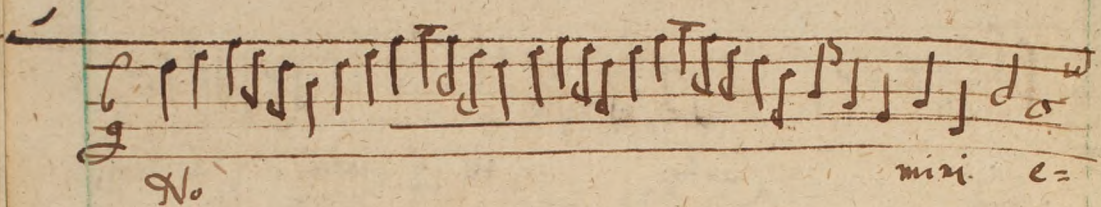 No mini. e=